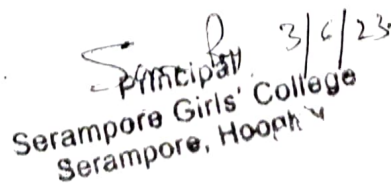 3/6/23
Principal
Serampore Girls' College
Serampore, Hooghly